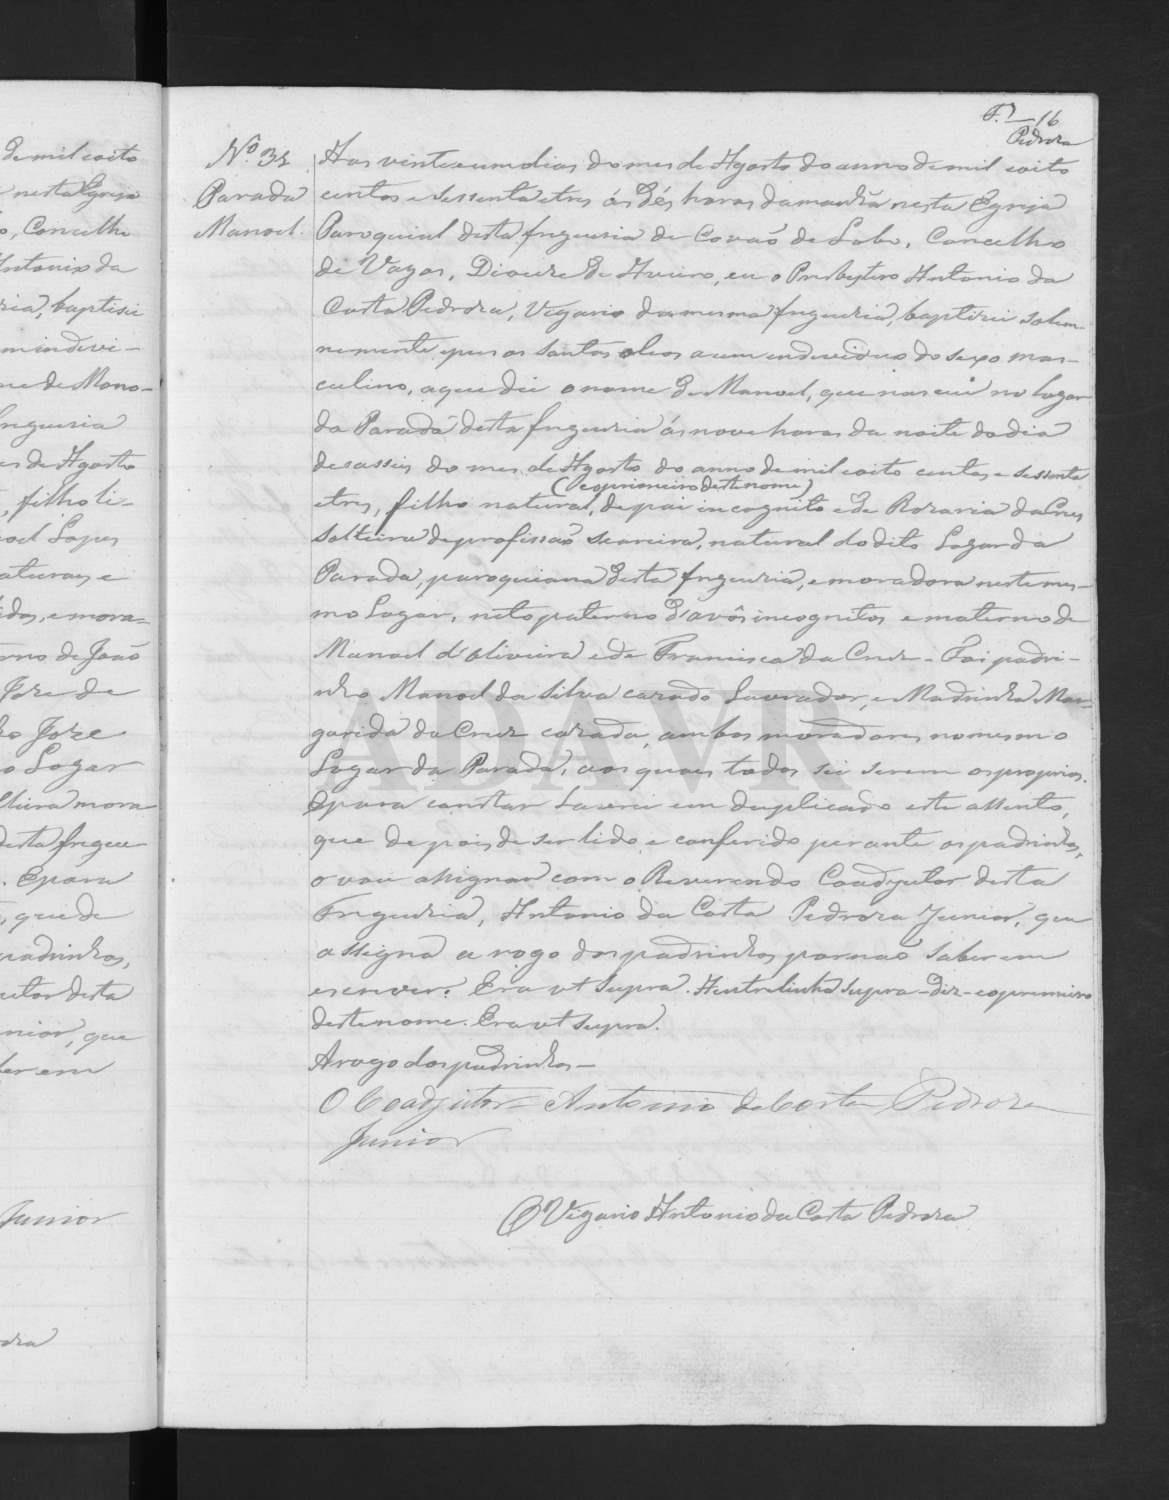 F.º 16
Pedroza
Nº 35
Parada
Manoel.
Aos vinte e um dias do mes de Agosto do anno de mil e oito
centos e sessenta e tres ás dés horas da manhã nesta Egreja
Paroquial desta freguesia de Covaõ do Lobo, Concelho
de Vagos, Diocese de Aveiro, eu o Presbytero Antonio da
Costa Pedroza, Vigario da mesma freguezia, baptisei solem-
nemente e pus os Santos oleos a um endeviduo do sexo mas-
culino, a que dei o nome de Manoel, que nasceu no lugar
da Parada desta freguezia ás nove horas da noite do dia
desasseis do mes de Agosto do anno de mil e oito centos e sessenta
(e o primeiro deste nome)
e tres, filho natural, de pai incognito e de Rozaria da Crus
Solteira de profissaõ seareira, natural do dito Logar da
Parada, paroquiana desta freguezia, e moradora neste mes-
mo Logar, neto paterno d'avôs incognitos e materno de
Manoel d'Oliveira e de Francisca da Cruz. Foi padri-
nho Manoel da Silva cazado Lavrador, e Madrinha Mar-
garida da Cruz cazada, ambos moradores no mesmo
Logar da Parada, aos quaes todos sei serem os proprios.
E para constar Lavrei em duplicado este assento,
que depois de ser lido e conferido perante os padrinhos,
o vou assignar com o Reverendo Coadjutor desta
Freguezia, Antonio da Costa Pedroza Junior, que
assigna a rogo dos padrinhos por naõ saberem
escrever. Era ut supra. A entrelinha supra - diz - e o premeiro
deste nome. Era ut supra.
A rogo dos padrinhos -
O Coadjutor = Antonio da Costa Pedroza
Junior
O Vigario Antonio da Costa Pedroza
de mil e oito
nesta Egreja
Concelho
Antonio da
baptisei
m indevi-
me de Mano-
freguesia
es de Agosto
filho li-
oel Lopes
aturaes e
dos, e mora-
rno de Joaõ
Joze de
ho Joze
o Logar
lteira mora
desta fregue
. E para
, que de
padrinhos,
utor desta
nior, que
berem
Junior
ADAVR